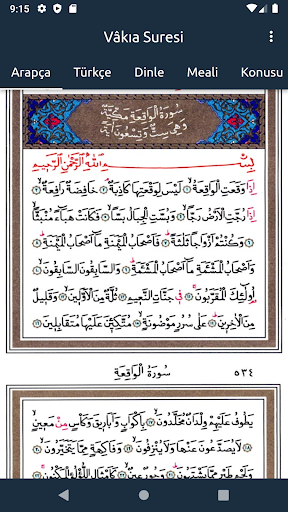 9:15
Vâkıa Suresi
Arapça Türkçe Dinle Meali Konusu
سُورَةُ الْوَاقِعَةِ مَكِّيَّةٌ
وَهِيَ سِتٌّ وَتِسْعُونَ آيَةً
بِسْمِ اللّٰهِ الرَّحْمٰنِ الرَّحِيمِ
اِذَا وَقَعَتِ الْوَاقِعَةُ ۝١ لَيْسَ لِوَقْعَتِهَا كَاذِبَةٌ ۝٢ خَافِضَةٌ رَافِعَةٌ ۝٣
اِذَا رُجَّتِ الْاَرْضُ رَجًّا ۝٤ وَبُسَّتِ الْجِبَالُ بَسًّا ۝٥ فَكَانَتْ هَبَاءً مُنْبَثًّا ۝٦
وَكُنْتُمْ اَزْوَاجًا ثَلٰثَةً ۝٧ فَاَصْحَابُ الْمَيْمَنَةِ مَا اَصْحَابُ الْمَيْمَنَةِ ۝٨
وَاَصْحَابُ الْمَشْـَٔمَةِ مَا اَصْحَابُ الْمَشْـَٔمَةِ ۝٩ وَالسَّابِقُونَ السَّابِقُونَ ۝١٠
اُولٰئِكَ الْمُقَرَّبُونَ ۝١١ فِي جَنَّاتِ النَّعِيمِ ۝١٢ ثُلَّةٌ مِنَ الْاَوَّلِينَ ۝١٣ وَقَلِيلٌ
مِنَ الْاٰخِرِينَ ۝١٤ عَلٰى سُرُرٍ مَوْضُونَةٍ ۝١٥ مُتَّكِـِٔينَ عَلَيْهَا مُتَقَابِلِينَ ۝١٦
سُورَةُ الْوَاقِعَةِ ٥٣٤
يَطُوفُ عَلَيْهِمْ وِلْدَانٌ مُخَلَّدُونَ ۝١٧ بِاَكْوَابٍ وَاَبَارِيقَ وَكَأْسٍ مِنْ مَعِينٍ ۝١٨
لَا يُصَدَّعُونَ عَنْهَا وَلَا يُنْزِفُونَ ۝١٩ وَفَاكِهَةٍ مِمَّا يَتَخَيَّرُونَ ۝٢٠
وَلَحْمِ طَيْرٍ مِمَّا يَشْتَهُونَ ۝٢١ وَحُورٌ عِينٌ ۝٢٢ كَاَمْثَالِ اللُّؤْلُؤِ الْمَكْنُونِ ۝٢٣